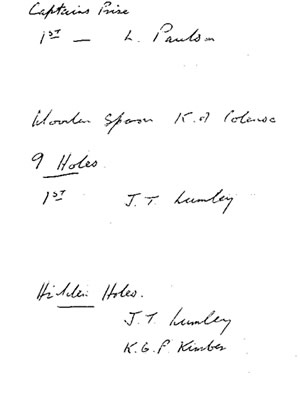 Captains Prize
1ST — L. Paulson
Wooden Spoon K. of
9 Holes.
1ST J. T. Lumley
Hidden Holes.
J. T. Lumley
K. G. P. Kimber